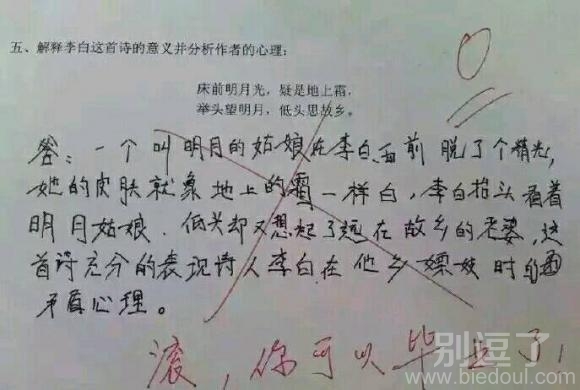 五、解释李白这首诗的意义并分析作者的心理：
床前明月光，疑是地上霜，
举头望明月，低头思故乡。
0
答：一个叫明月的姑娘在李白面前脱了个精光，
她的皮肤就象地上的霜一样白，李白抬头看着
明月姑娘．低头却又想起了远在故乡的老婆，这
首诗充分的表现诗人李白在他乡嫖妓时的
矛盾心理。
滚，你可以毕业了！
别逗了
www.biedoul.com